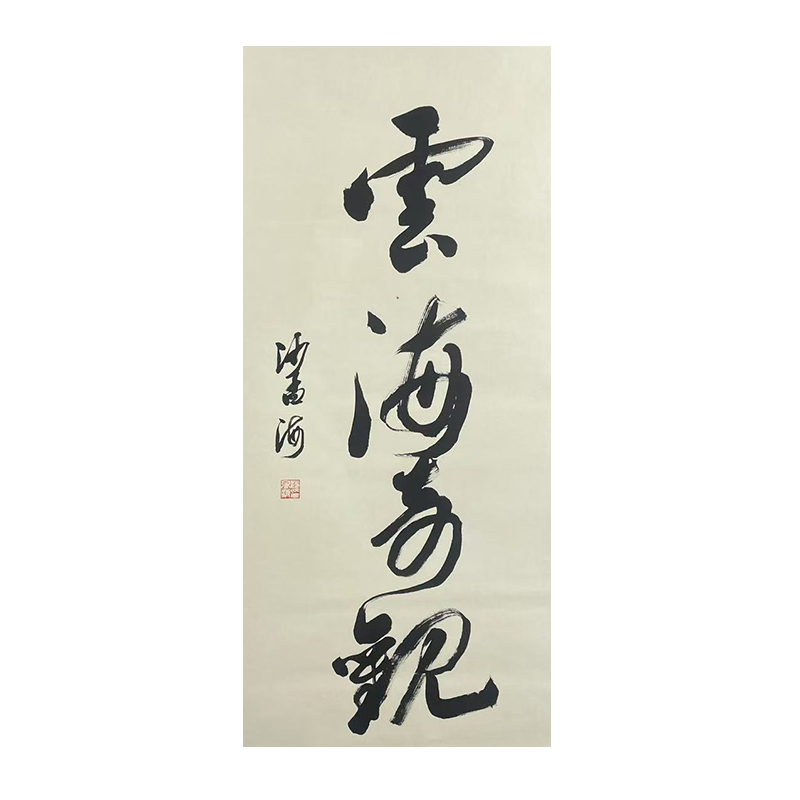 雲海奇觀
沙孟海